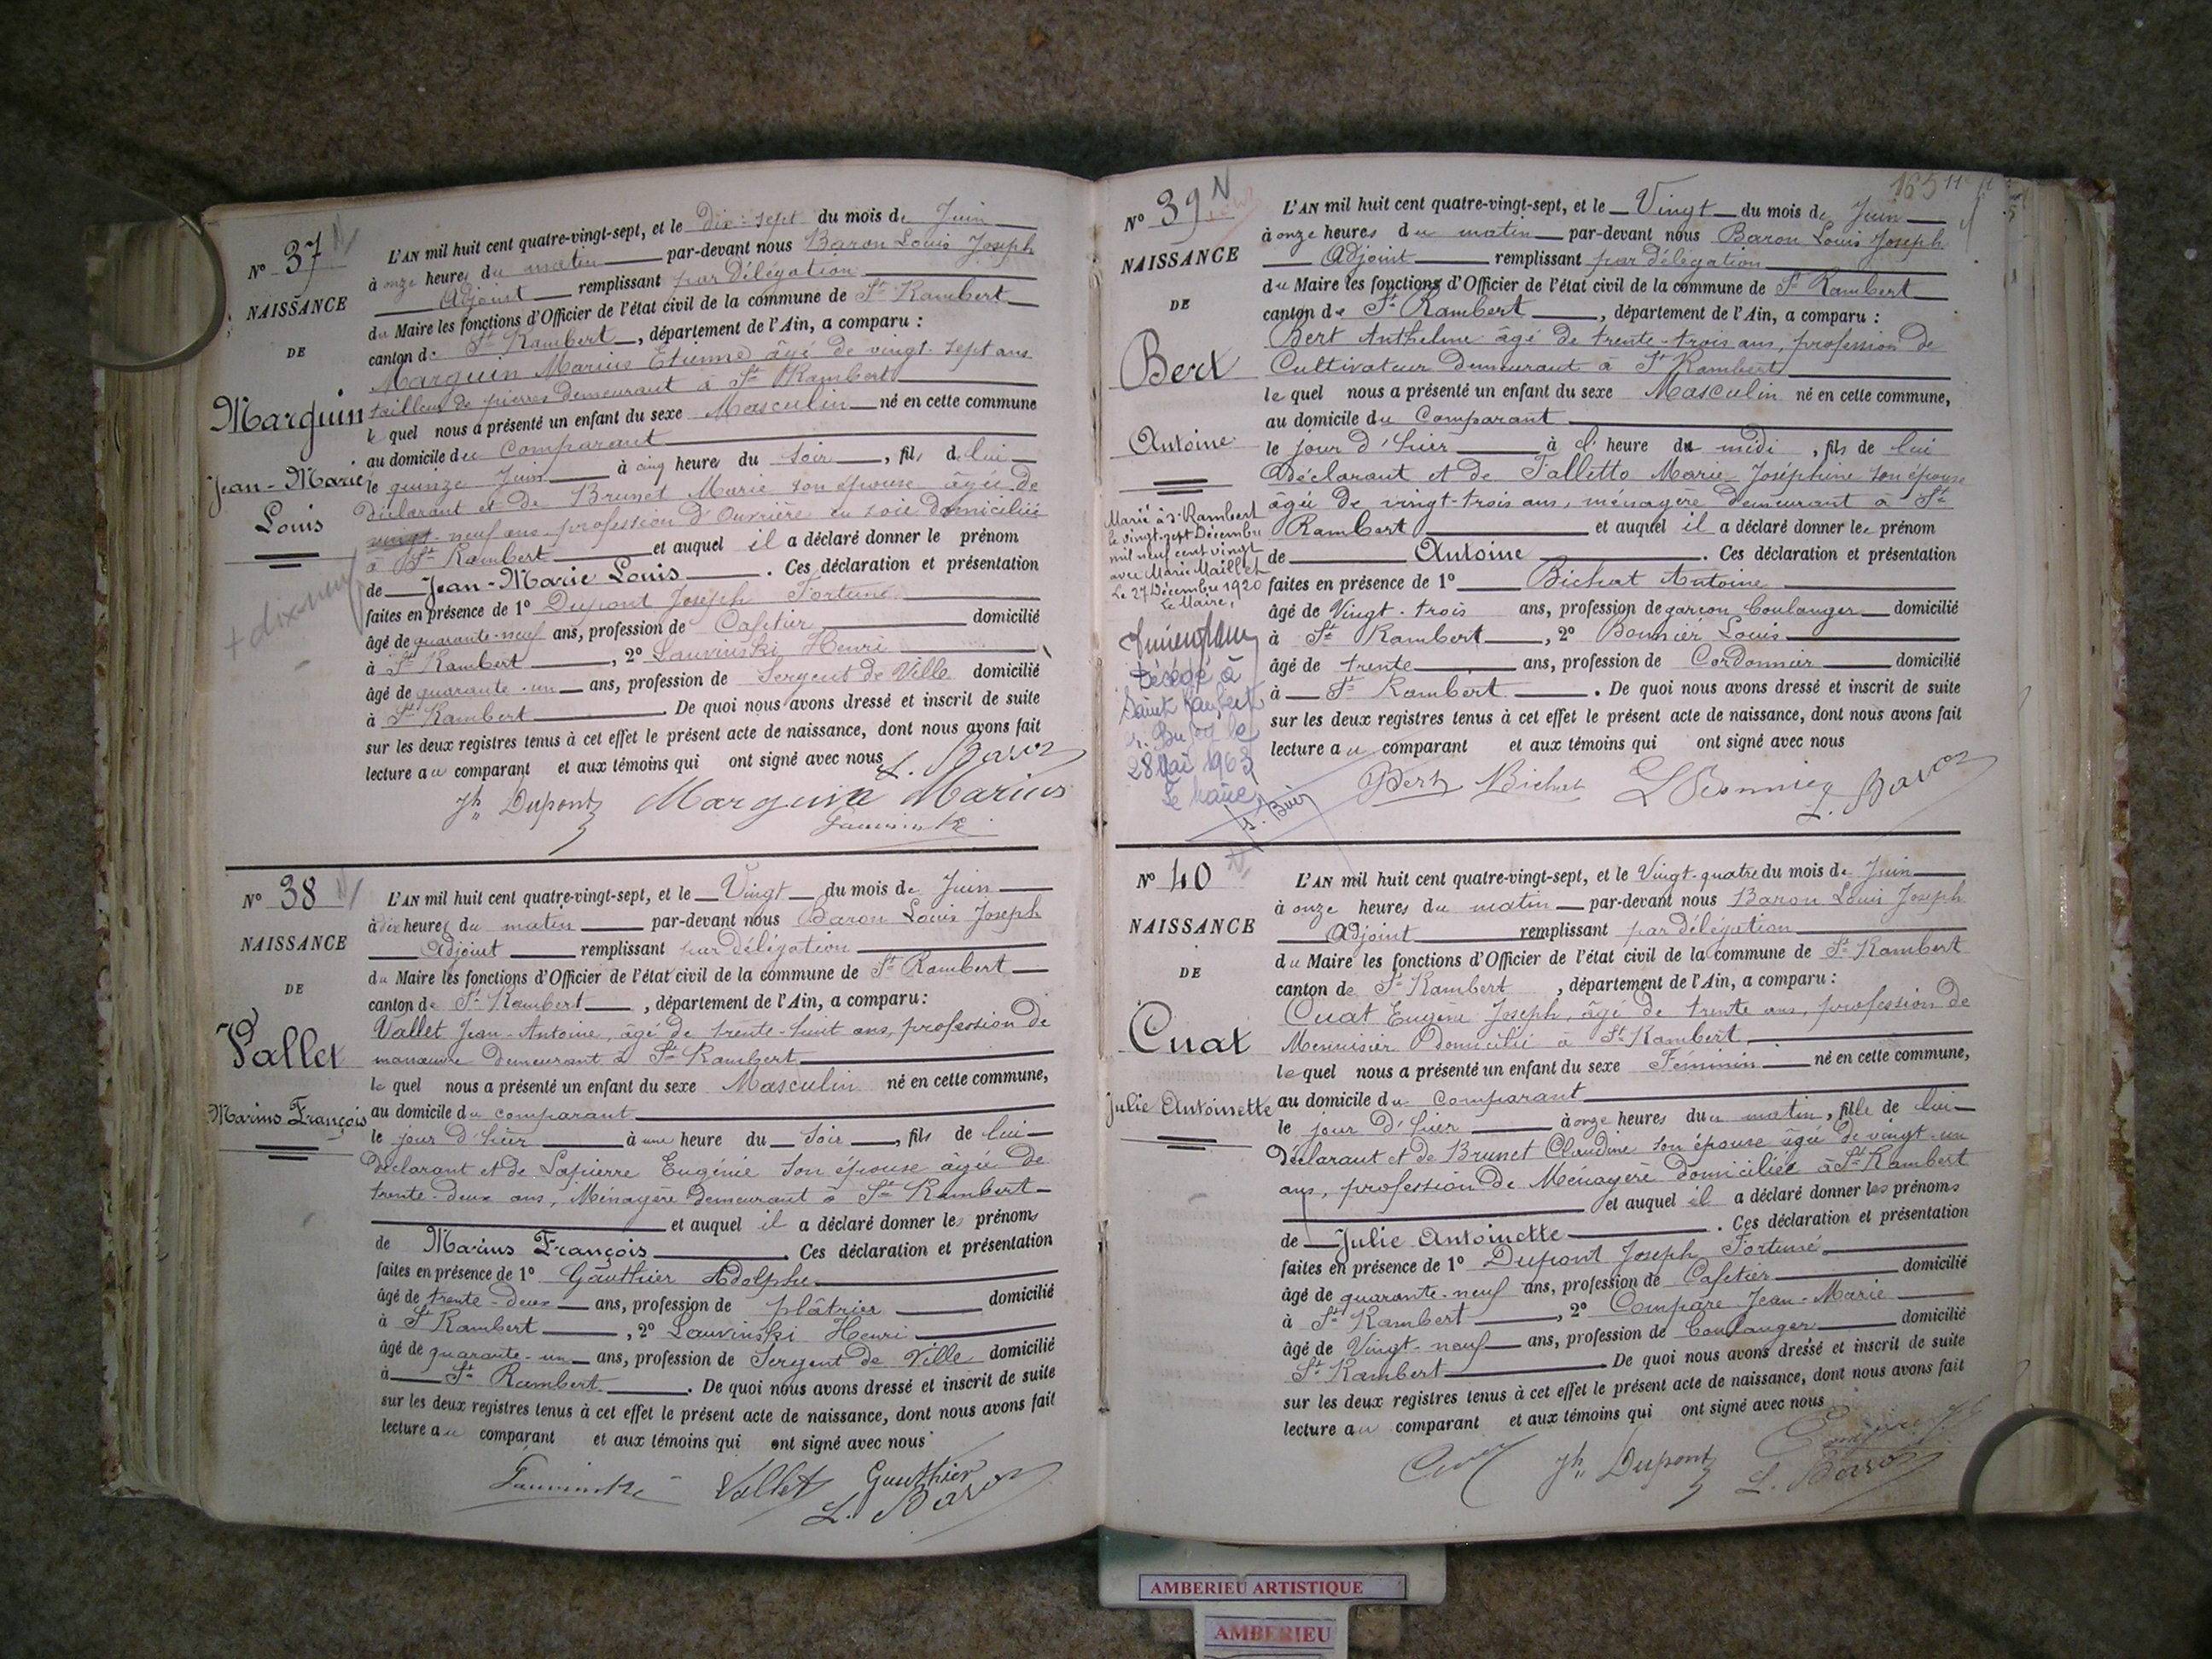 N° 37
NAISSANCE
DE
Marguin
Jean-Marie
Louis
+ dix-neuf
L'AN mil huit cent quatre-vingt-sept, et le dix-sept du mois de Juin
à onze heures du matin par-devant nous Baron Louis Joseph
Adjoint remplissant par délégation
du Maire les fonctions d'Officier de l'état civil de la commune de St Rambert
canton de St Rambert, département de l'Ain, a comparu :
Marguin Marius Etienne âgé de vingt-sept ans
tailleur de pierres demeurant à St Rambert
le quel nous a présenté un enfant du sexe Masculin né en cette commune
au domicile du Comparant
le quinze Juin à cinq heures du soir, fils de lui
déclarant et de Brunet Marie son épouse âgée de
vingt-neuf ans profession d'Ouvrière en soie domiciliée
à St Rambert et auquel il a déclaré donner le prénom
de Jean-Marie Louis. Ces déclaration et présentation
faites en présence de 1° Dupont Joseph Fortuné
âgé de quarante-neuf ans, profession de Cafetier domicilié
à St Rambert, 2° Lauvinski Henri
âgé de quarante-un ans, profession de Sergent de Ville domicilié
à St Rambert. De quoi nous avons dressé et inscrit de suite
sur les deux registres tenus à cet effet le présent acte de naissance, dont nous avons fait
lecture au comparant et aux témoins qui ont signé avec nous
L. Baron
Jh Dupont Marguin Marius
Lauvinski
N° 38
NAISSANCE
DE
Vallet
Marius François
L'AN mil huit cent quatre-vingt-sept, et le Vingt du mois de Juin
à dix heures du matin par-devant nous Baron Louis Joseph
Adjoint remplissant par délégation
du Maire les fonctions d'Officier de l'état civil de la commune de St Rambert
canton de St Rambert, département de l'Ain, a comparu :
Vallet Jean-Antoine, âgé de trente-huit ans, profession de
manœuvre demeurant à St Rambert
le quel nous a présenté un enfant du sexe Masculin né en cette commune,
au domicile du comparant
le jour d'hier à une heure du soir, fils de lui
déclarant et de Lapierre Eugénie son épouse âgée de
trente-deux ans, Ménagère demeurant à St Rambert
et auquel il a déclaré donner les prénoms
de Marius François. Ces déclaration et présentation
faites en présence de 1° Gauthier Adolphe
âgé de trente-deux ans, profession de plâtrier domicilié
à St Rambert, 2° Lauvinski Henri
âgé de quarante-un ans, profession de Sergent de Ville domicilié
à St Rambert. De quoi nous avons dressé et inscrit de suite
sur les deux registres tenus à cet effet le présent acte de naissance, dont nous avons fait
lecture au comparant et aux témoins qui ont signé avec nous
Lauvinski Vallet Gauthier
L. Baron
165
N° 39 N
NAISSANCE
DE
Bert
Antoine
Marié à St Rambert
le vingt-sept Décembre
mil neuf cent vingt
avec Marie Maillet
Le 27 Décembre 1920
Le Maire,
Décédé à
Saint Rambert
en Bugey le
28 Mai 1963
Le Maire
L'AN mil huit cent quatre-vingt-sept, et le Vingt du mois de Juin
à onze heures du matin par-devant nous Baron Louis Joseph
Adjoint remplissant par délégation
du Maire les fonctions d'Officier de l'état civil de la commune de St Rambert
canton de St Rambert, département de l'Ain, a comparu :
Bert Anthelme âgé de trente-trois ans, profession de
Cultivateur demeurant à St Rambert
le quel nous a présenté un enfant du sexe Masculin né en cette commune,
au domicile du Comparant
le jour d'hier à l' heure du midi, fils de lui
déclarant et de Falletto Marie Joséphine son épouse
âgée de vingt-trois ans, ménagère demeurant à St
Rambert et auquel il a déclaré donner le prénom
de Antoine. Ces déclaration et présentation
faites en présence de 1° Bichat Antoine
âgé de Vingt-trois ans, profession de garçon boulanger domicilié
à St Rambert, 2° Bonnier Louis
âgé de trente ans, profession de Cordonnier domicilié
à St Rambert. De quoi nous avons dressé et inscrit de suite
sur les deux registres tenus à cet effet le présent acte de naissance, dont nous avons fait
lecture au comparant et aux témoins qui ont signé avec nous
Bert Bichat L Bonnier L. Baron
N° 40
NAISSANCE
DE
Cuat
Julie Antoinette
L'AN mil huit cent quatre-vingt-sept, et le Vingt-quatre du mois de Juin
à onze heures du matin par-devant nous Baron Louis Joseph
Adjoint remplissant par délégation
du Maire les fonctions d'Officier de l'état civil de la commune de St Rambert
canton de St Rambert, département de l'Ain, a comparu :
Cuat Eugène Joseph, âgé de trente ans, profession de
Menuisier Domicilié à St Rambert
le quel nous a présenté un enfant du sexe Féminin né en cette commune,
au domicile du comparant
le jour d'hier à onze heures du matin, fille de lui
déclarant et de Brunet Claudine son épouse âgée de vingt-un
ans, profession de Ménagère domiciliée à St Rambert
et auquel il a déclaré donner les prénoms
de Julie Antoinette. Ces déclaration et présentation
faites en présence de 1° Dupont Joseph Fortuné
âgé de quarante-neuf ans, profession de Cafetier domicilié
à St Rambert, 2° Compare Jean-Marie
âgé de Vingt-neuf ans, profession de boulanger domicilié
St Rambert. De quoi nous avons dressé et inscrit de suite
sur les deux registres tenus à cet effet le présent acte de naissance, dont nous avons fait
lecture au comparant et aux témoins qui ont signé avec nous
Cuat Jh Dupont L. Baron
AMBERIEU ARTISTIQUE
AMBERIEU